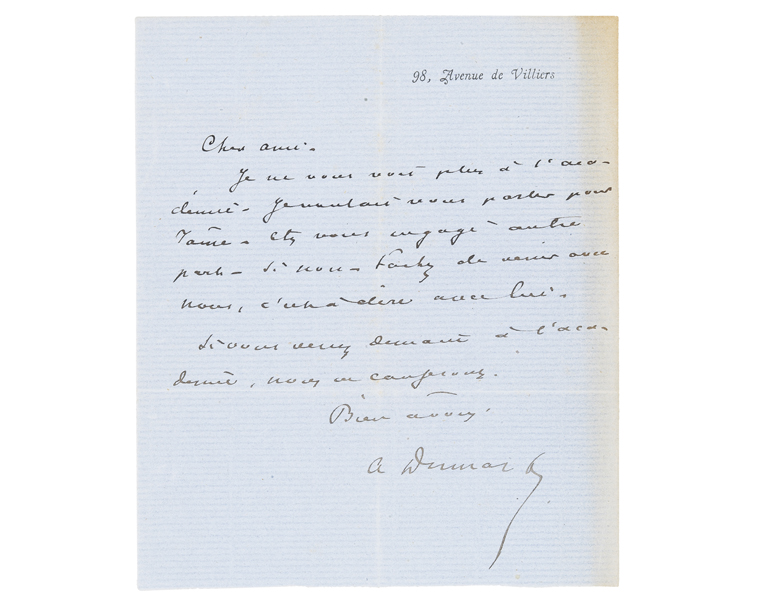 98, Avenue de Villiers
Cher ami.
Je ne vous vois plus à l'aca-
démie. Je voulais vous parler pour
Taine. Etes vous engagé autre
part. Si non. tachez de venir avec
nous, c'est à dire avec lui.
Si vous venez demain à l'aca-
démie, nous en causerons.
Bien à vous.
A Dumas f